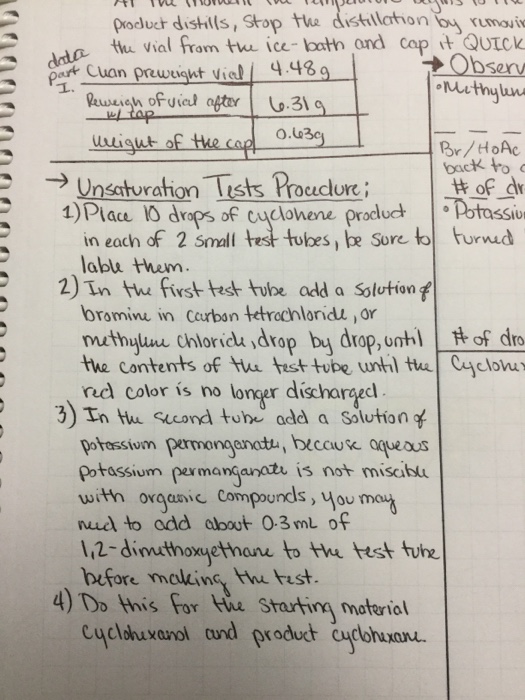 product distills, Stop the distillation by
the vial from the ice-bath and cap it QUICK
data part I.
Clean preweight vial 4.48g
Reweigh of vial after w/ cap 6.31g
Weight of the cap 0.63g
→ Unsaturation Tests Procedure;
1) Place 10 drops of cyclohene product
in each of 2 small test tubes, be sure to
lable them.
2) In the first test tube add a solution of
bromine in carbon tetrachloride, or
methylene chloride, drop by drop, until
the contents of the test tube until the
red color is no longer discharged.
3) In the second tube add a solution of
potassium permanganate, because aqueous
potassium permanganate is not miscible
with organic compounds, you may
need to add about 0.3 mL of
1,2-dimethoxyethane to the test tube
before making the test.
4) Do this for the starting material
cyclohexanol and product cyclohexane.
→ Observ
• Methylene
Br/HoAc
back to
# of dr
• Potassiu
turned
# of dro
Cyclohe